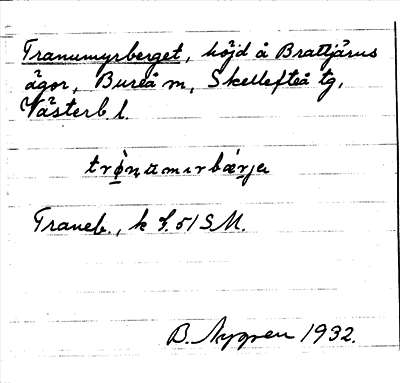 Tranumyrberget, höjd å Brattjärns
ägor, Bureå m, Skellefteå tg,
Västerb l.
trø̀nɷmırbærja
Traneb., k f. 51 S M.
B. Nygren 1932.